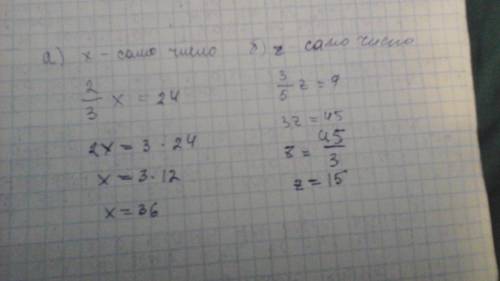 а) x - само число
2/3 x = 24
2x = 3 · 24
x = 3 · 12
x = 36
б) z само число
3/5 z = 9
3z = 45
z = 45/3
z = 15